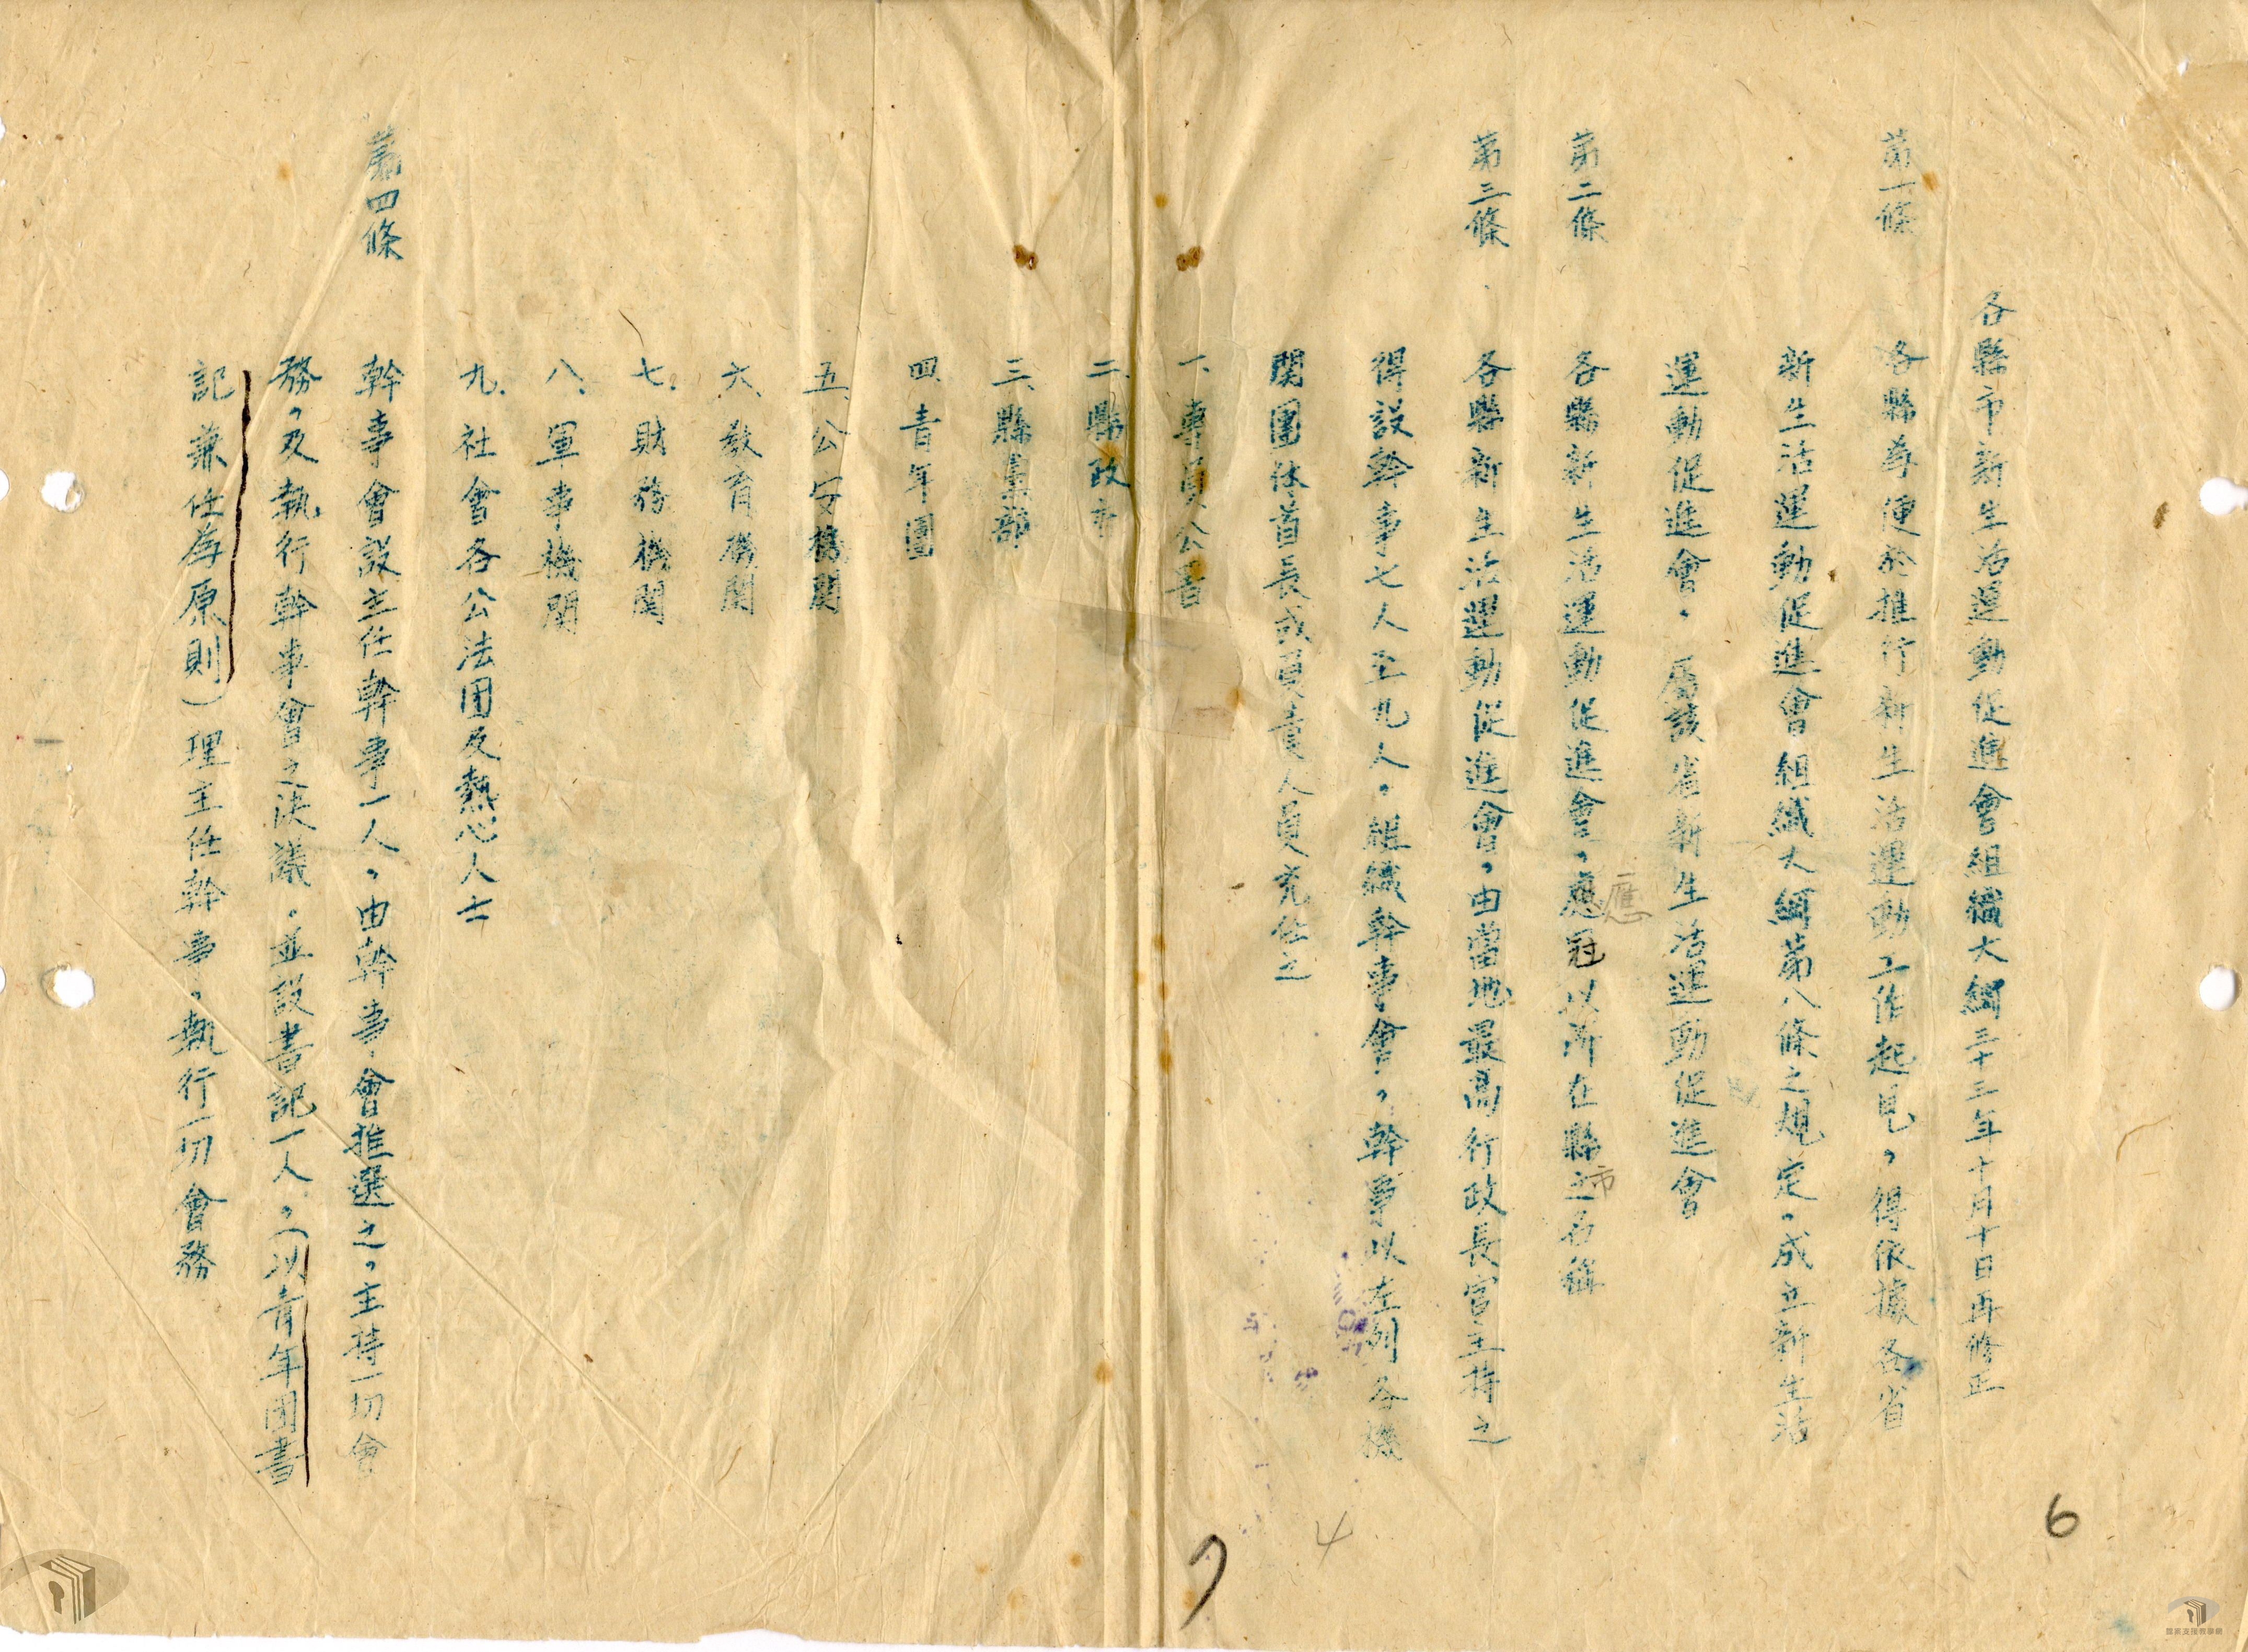 各縣市新生活運動促進會組織大綱 三十三年十月十日再修正
第一條 各縣為便於推行新生活運動工作起見，得依據各省
新生活運動促進會組織大綱第八條之規定，成立新生活
運動促進會，屬該省新生活運動促進會
第二條 各縣新生活運動促進會，應冠以所在縣之名稱
應
市
第三條 各縣新生活運動促進會，由當地最高行政長官主持之
得設幹事七人至九人，組織幹事會，幹事以左列各機
関團体首長或負責人員充任之
一、專員公署
二、縣政府
三、縣黨部
四、青年團
五、公安機関
六、教育機関
七、財務機関
八、軍事機関
九、社會各公法団及熱心人士
第四條 幹事會設主任幹事一人，由幹事會推選之，主持一切會
務，及執行幹事會之決議，並設書記一人，（以青年団書
記兼任為原則）理主任幹事，執行一切會務
6
4
7